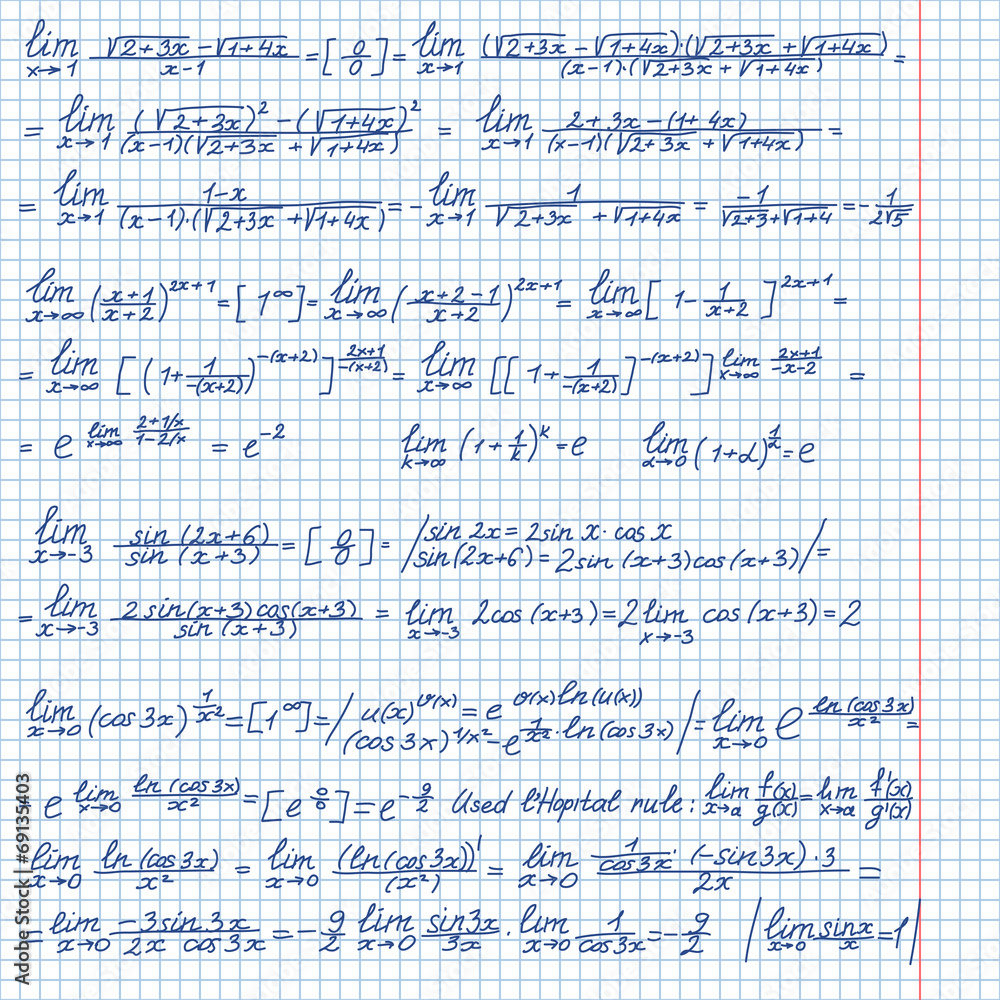 lim x→1 (√2+3x − √1+4x)/(x−1) = [0/0] = lim x→1 ((√2+3x − √1+4x)·(√2+3x + √1+4x))/((x−1)·(√2+3x + √1+4x)) =
= lim x→1 ((√2+3x)² − (√1+4x)²)/((x−1)(√2+3x + √1+4x)) = lim x→1 (2+3x−(1+4x))/((x−1)(√2+3x + √1+4x)) =
= lim x→1 (1−x)/((x−1)·(√2+3x + √1+4x)) = − lim x→1 1/(√2+3x + √1+4x) = −1/(√2+3+√1+4) = −1/(2√5)
lim x→∞ ((x+1)/(x+2))^(2x+1) = [1^∞] = lim x→∞ ((x+2−1)/(x+2))^(2x+1) = lim x→∞ [1− 1/(x+2)]^(2x+1) =
= lim x→∞ [(1+ 1/(−(x+2)))^(−(x+2))]^((2x+1)/(−(x+2))) = lim x→∞ [[1+ 1/(−(x+2))]^(−(x+2))]^(lim x→∞ (2x+1)/(−x−2)) =
= e^(lim x→∞ (2+1/x)/(1−2/x)) = e^(−2) lim k→∞ (1+ 1/k)^k = e lim α→0 (1+α)^(1/α) = e
lim x→−3 sin (2x+6)/sin (x+3) = [0/0] = /sin 2x = 2sin x·cos x
sin(2x+6) = 2sin (x+3)cos (x+3)/ =
= lim x→−3 (2 sin(x+3)cos(x+3))/(sin (x+3)) = lim x→−3 2cos (x+3) = 2 lim x→−3 cos (x+3) = 2
lim x→0 (cos 3x)^(1/x²) = [1^∞] = / u(x)^(v(x)) = e^(v(x)ln(u(x)))
(cos 3x)^(1/x²) − e^(1/x²·ln(cos 3x)) / = lim x→0 e^(ln(cos 3x)/x²) =
e^(lim x→0 ln (cos 3x)/x²) = [e^(0/0)] = e^(−9/2) Used l'Hopital rule: lim x→a f(x)/g(x) = lim x→a f'(x)/g'(x)
lim x→0 ln (cos 3x)/x² = lim x→0 (ln(cos 3x))'/(x²) = lim x→0 (1/cos 3x · (−sin 3x)·3)/2x =
= lim x→0 (−3 sin 3x)/(2x cos 3x) = −9/2 lim x→0 sin3x/3x · lim x→0 1/cos 3x = −9/2 | lim x→0 sinx/x = 1 |
Adobe Stock | #69135403